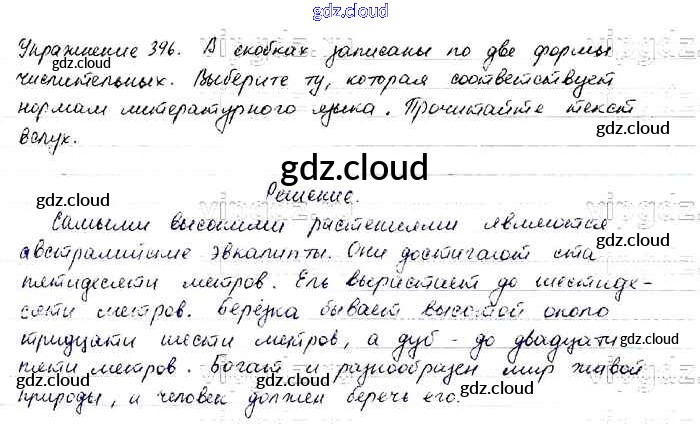 gdz.cloud
Упражнение 396. В скобках записаны по две формы
числительных. Выберите ту, которая соответствует
нормам литературного языка. Прочитайте текст
вслух.
gdz.cloud
gdz.cloud
gdz.cloud
Решение.
gdz.cloud
Самыми высокими растениями являются
австралийские эвкалипты. Они достигают ста
gdz.cloud
пятидесяти метров. Ель вырастает до шестиде-
gdz.cloud
сяти метров. Берёзка бывает высотой около
gdz.cloud
тридцати шести метров, а дуб - до двадцати
gdz.cloud
пяти метров. Богат и разнообразен мир живой
gdz.cloud
gdz.cloud
природы, и человек должен беречь его.
gdz.cloud